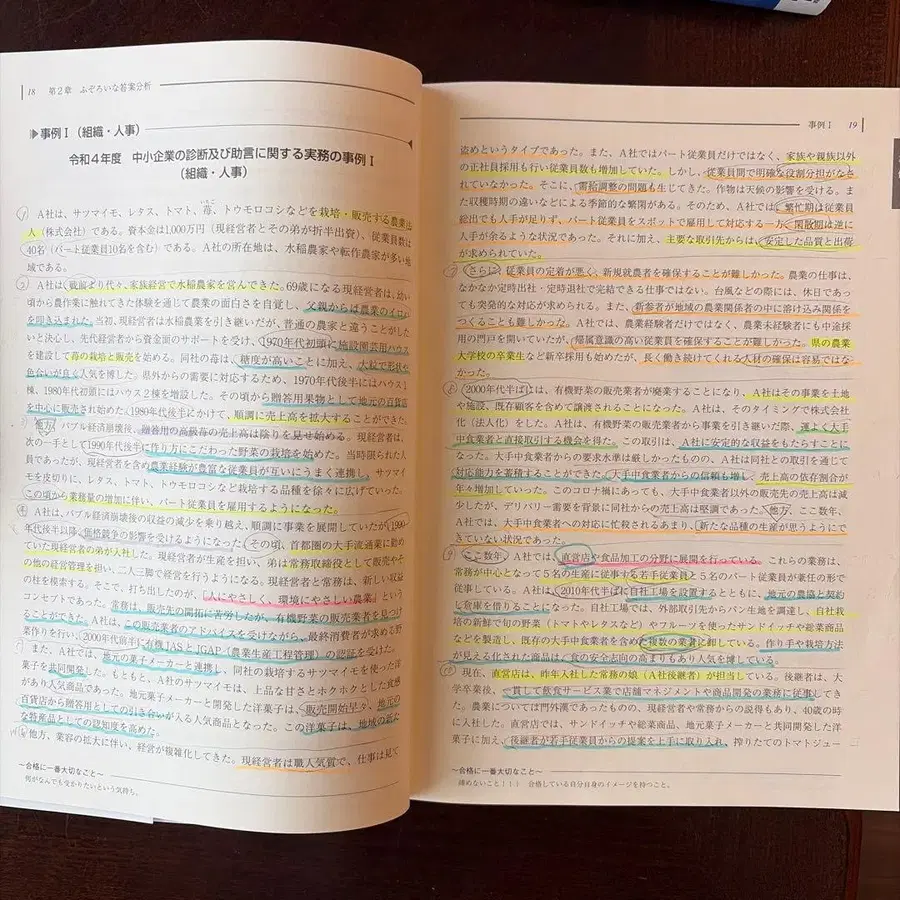 18 第2章 ふぞろいな答案分析
▶事例Ⅰ（組織・人事）
令和4年度 中小企業の診断及び助言に関する実務の事例Ⅰ
（組織・人事）
① A社は、サツマイモ、レタス、トマト、苺、トウモロコシなどを栽培・販売する農業法
人（株式会社）である。資本金は1,000万円（現経営者とその弟が折半出資）、従業員数は
40名（パート従業員10名を含む）である。A社の所在地は、水稲農家や転作農家が多い地
域である。
② A社は、戦前より代々、家族経営で水稲農家を営んできた。69歳になる現経営者は、幼い
頃から農作業に触れてきた体験を通じて農業の面白さを自覚し、父親からは農業のイロハ
を叩き込まれた。当初、現経営者は水稲農業を引き継いだが、普通の農家と違うことがした
いと決心し、先代経営者から資金面のサポートを受け、1970年代初頭に施設園芸用ハウス
を建設して苺の栽培と販売を始める。同社の苺は、糖度が高いことに加え、大粒で形状や
色合いが良く人気を博した。県外からの需要に対応するため、1970年代後半にはハウス1
棟、1980年代初頭にはハウス2棟を増設した。その頃から贈答用果物として地元の百貨店
を中心に販売され始めた。1980年代後半にかけて、順調に売上高を拡大することができた。
③ 他方、バブル経済崩壊後、贈答用の高級苺の売上高は陰りを見せ始める。現経営者は、
次の一手として1990年代後半に作り方にこだわった野菜の栽培を始めた。当時限られた人
員であったが、現経営者を含め農業経験が豊富な従業員が互いにうまく連携し、サツマイ
モを皮切りに、レタス、トマト、トウモロコシなど栽培する品種を徐々に広げていった。
この頃から業務量の増加に伴い、パート従業員を雇用するようになった。
④ A社は、バブル経済崩壊後の収益の減少を乗り越え、順調に事業を展開していたが、1990
年代後半以降、価格競争の影響を受けるようになった。その頃、首都圏の大手流通業に勤め
ていた現経営者の弟が入社した。現経営者が生産を担い、弟は常務取締役として販売やそ
の他の経営管理を担い、二人三脚で経営を行うようになる。現経営者と常務は、新しい収益
の柱を模索する。そこで、打ち出したのが、「人にやさしく、環境にやさしい農業」という
コンセプトであった。常務は、販売先の開拓に苦労したが、有機野菜の販売業者を見つけ
ることができた。A社は、この販売業者のアドバイスを受けながら、最終消費者が求める野
菜作りを行い、2000年代前半に有機JASとJGAP（農業生産工程管理）の認証を受けた。
また、A社では、地元の菓子メーカーと連携し、同社の栽培するサツマイモを使った洋
菓子を共同開発した。もともと、A社のサツマイモは、上品な甘さとホクホクとした食感
があり人気商品であった。地元菓子メーカーと開発した洋菓子は、販売開始早々、地元の
百貨店から贈答用としての引き合いが入る人気商品となった。この洋菓子は、地域の新た
な特産品としての認知度を高めた。
他方、業容の拡大に伴い、経営が複雑化してきた。現経営者は職人気質で、仕事は見て
～合格に一番大切なこと～
何がなんでも受かりたいという気持ち。
事例Ⅰ 19
盗めというタイプであった。また、A社ではパート従業員だけではなく、家族や親族以外
の正社員採用も行い従業員数も増加していた。しかし、従業員間で明確な役割分担がなさ
れていなかった。そこに、需給調整の問題も生じてきた。作物は天候の影響を受ける。ま
た収穫時期の違いなどによる季節的な繁閑がある。そのため、A社では、繁忙期は従業員
総出でも人手が足りず、パート従業員をスポットで雇用して対応する一方、閑散期は逆に
人手が余るような状況であった。それに加え、主要な取引先からは、安定した品質と出荷
が求められていた。
⑦ さらに、従業員の定着が悪く、新規就農者を確保することが難しかった。農業の仕事は、
なかなか定時出社・定時退社で完結できる仕事ではない。台風などの際には、休日であっ
ても突発的な対応が求められる。また、新参者が地域の農業関係者の中に溶け込み関係を
つくることも難しかった。A社では、農業経験者だけではなく、農業未経験者にも中途採
用の門戸を開いていたが、帰属意識の高い従業員を確保することが難しかった。県の農業
大学校の卒業生など新卒採用も始めたが、長く働き続けてくれる人材の確保は容易ではな
かった。
⑧ 2000年代半ばには、有機野菜の販売業者が廃業することになり、A社はその事業を土地
や施設、既存顧客を含めて譲渡されることになった。A社は、そのタイミングで株式会社
化（法人化）をした。A社は、有機野菜の販売業者から事業を引き継いだ際、運よく大手
中食業者と直接取引する機会を得た。この取引は、A社に安定的な収益をもたらすことに
なった。大手中食業者からの要求水準は厳しかったものの、A社は同社との取引を通じて
対応能力を蓄積することができた。大手中食業者からの信頼も増し、売上高の依存割合が
年々増加していった。このコロナ禍にあっても、大手中食業者以外の販売先の売上高は減
少したが、デリバリー需要を背景に同社からの売上高は堅調であった。他方、ここ数年、
A社では、大手中食業者への対応に忙殺されるあまり、新たな品種の生産が思うようにで
きていない状況であった。
⑨ ここ数年、A社では、直営店や食品加工の分野に展開を行っている。これらの業務は、
常務が中心となって5名の生産に従事する若手従業員と5名のパート従業員が兼任の形で
従事している。A社は、2010年代半ばに自社工場を設置するとともに、地元の農協と契約
し倉庫を借りることになった。自社工場では、外部取引先からパン生地を調達し、自社栽
培の新鮮で旬の野菜（トマトやレタスなど）やフルーツを使ったサンドイッチや総菜商品
などを製造し、既存の大手中食業者を含めた複数の業者に卸している。作り手や栽培方法
が見える化された商品は、食の安全志向の高まりもあり人気を博している。
⑩ 現在、直営店は、昨年入社した常務の娘（A社後継者）が担当している。後継者は、大
学卒業後、一貫して飲食サービス業で店舗マネジメントや商品開発の業務に従事してき
た。農業については門外漢であったものの、現経営者や常務からの説得もあり、40歳の時
に入社した。直営店では、サンドイッチや総菜商品、地元菓子メーカーと共同開発した洋
菓子に加え、後継者が若手従業員からの提案を上手に取り入れ、搾りたてのトマトジュー
～合格に一番大切なこと～
諦めないこと！！！ 合格している自分自身のイメージを持つこと。